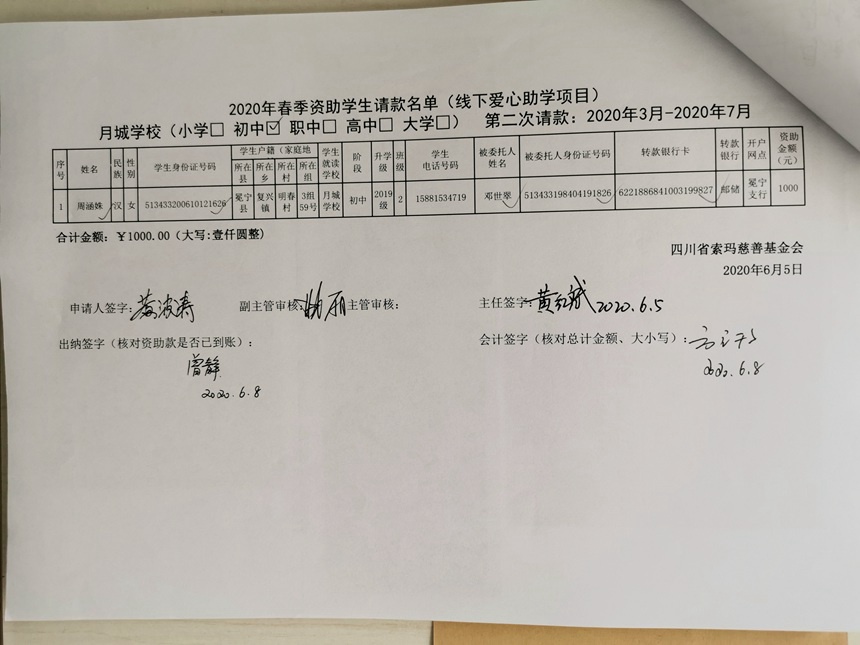 2020年春季资助学生请款名单（线下爱心助学项目）
月城学校（小学□ 初中☑ 职中□ 高中□ 大学□） 第二次请款：2020年3月-2020年7月
序号 姓名 民族 性别 学生身份证号码 学生户籍（家庭地 所在县 所在乡 所在村 所在组 学生就读学校 阶段 升学级 班级 学生电话号码 被委托人姓名 被委托人身份证号码 转款银行卡 转款银行 开户网点 资助金额（元）
1 周涵姝 汉 女 513433200610121626 冕宁县 复兴镇 明春村 3组59号 月城学校 初中 2019级 2 15881534719 邓世翠 513433198404191826 6221886841003199827 邮储 冕宁支行 1000
合计金额：￥1000.00（大写:壹仟圆整)
四川省索玛慈善基金会
2020年6月5日
申请人签字: 副主管审核: 主管审核: 主任签字:黄红斌 2020.6.5
出纳签字（核对资助款是否已到账）: 会计签字（核对总计金额、大小写）:
2020.6.8
2020.6.8